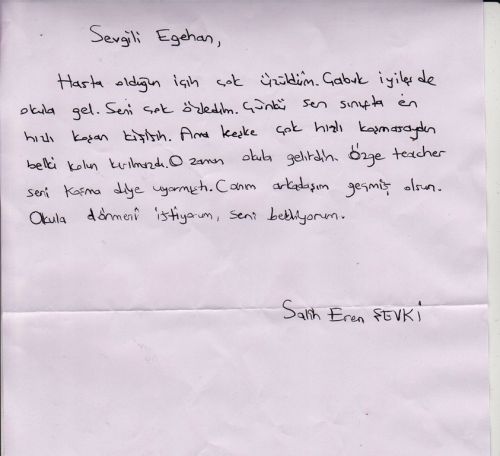 Sevgili Egehan,
Hasta olduğun için çok üzüldüm. Çabuk iyileş de
okula gel. Seni çok özledim. Çünkü sen sınıfta en
hızlı koşan kişisin. Ama keşke çok hızlı koşmasaydın
belki kolun kırılmazdı. O zaman okula gelirdin. Özge teacher
seni koşma diye uyarmıştı. Canım arkadaşım geçmiş olsun.
Okula dönmeni istiyorum, seni bekliyorum.
Salih Eren ŞEVKİ